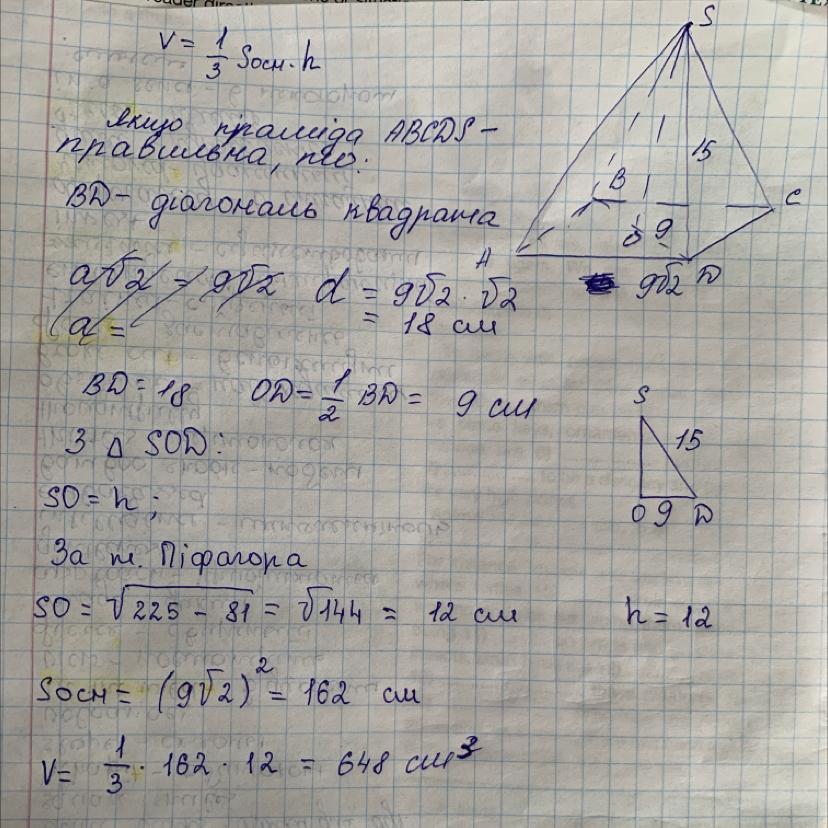 V = 1/3 Sосн · h
Якщо піраміда ABCDS –
правильна, то:
BD – діагональ квадрата
a√2 = 9√2 d = 9√2 · √2
a = = 18 см
BD = 18 OD = 1/2 BD = 9 см
З Δ SOD:
SO = h ;
За т. Піфагора
SO = √225 – 81 = √144 = 12 см h = 12
Sосн = (9√2)² = 162 см
V = 1/3 · 162 · 12 = 648 см³
S
15
B
C
O 9
A
9√2 D
S
15
O 9 D